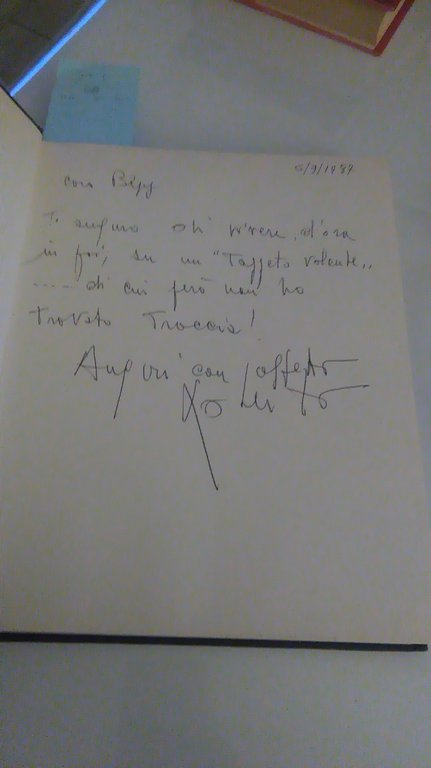 6/9/1987
caro Bepy
Ti auguro di vivere, d'ora
in poi, su un "Tappeto volante"
---- di cui però non ho
Trovato Traccia!
Auguri con affetto
Roberto